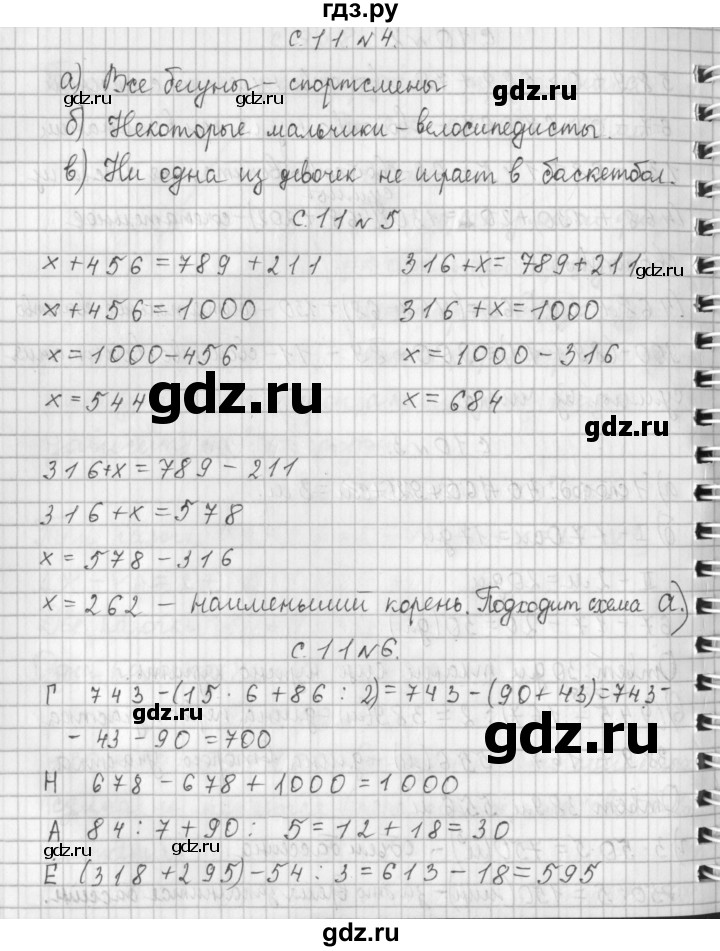 гдз.ру
с.11 №4.
а) Все бегуны – спортсмены
gdz.ru gdz.ru gdz.ru
б) Некоторые мальчики – велосипедисты.
в) Ни одна из девочек не играет в баскетбол.
с.11 №5
x+456=789+211 316+x=789+211
gdz.ru
x+456=1000 316+x=1000
x=1000-456 x=1000-316
x=544 x=684
gdz.ru gdz.ru
316+x=789-211
316+x=578
x=578-316
x=262 – наименьший корень. Подходит схема а.)
с.11 №6.
Г 743-(15·6+86:2)=743-(90+43)=743-
gdz.ru gdz.ru
-43-90=700
Н 678-678+1000=1000
А 84:7+90:5=12+18=30
gdz.ru gdz.ru
Е (318+295)-54:3=613-18=595
gdz.ru